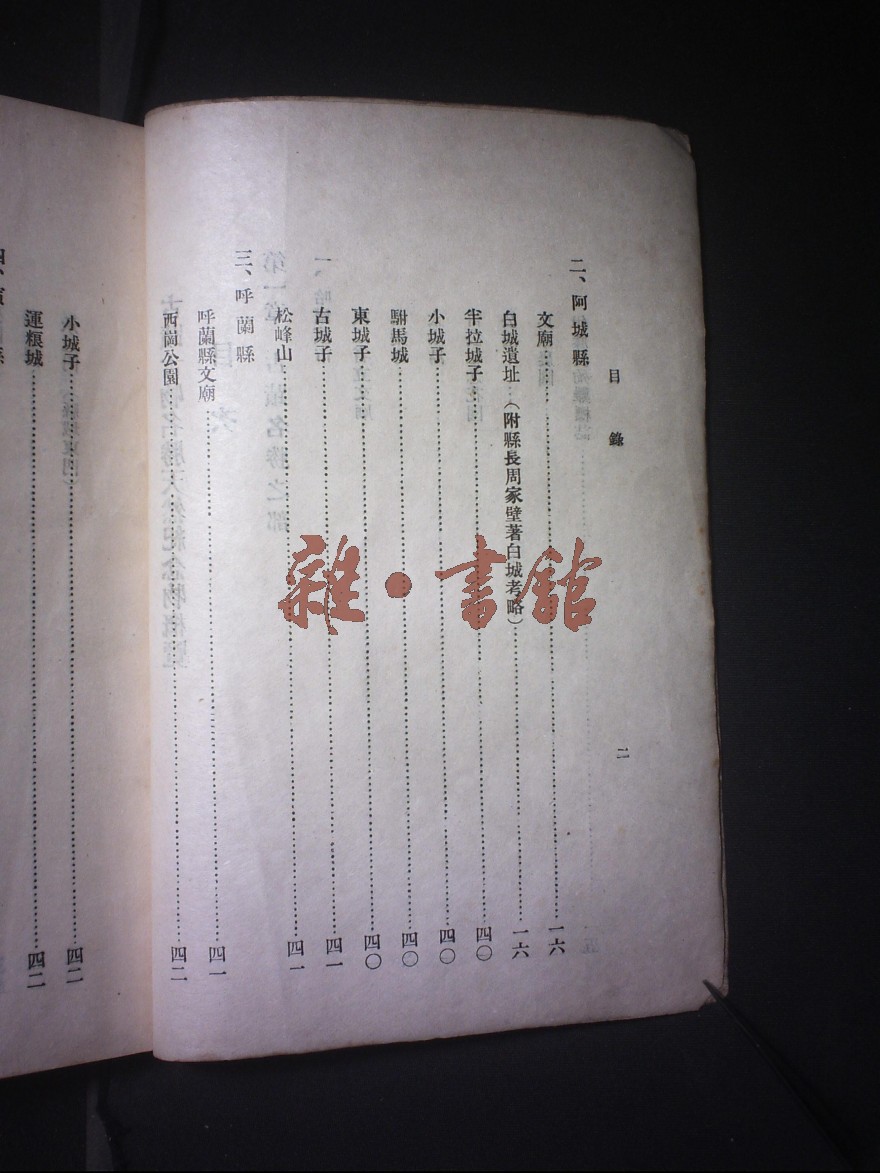 目錄
二
二、阿城縣
文廟……一六
白城遺址…（附縣長周家璧著白城考略）……一六
半拉城子……四〇
小城子……四〇
駙馬城……四〇
東城子……四〇
古城子……四一
松峰山……四一
三、呼蘭縣
呼蘭縣文廟……四一
西崗公園……四二
小城子……四二
運粮城……四二
雜·書館